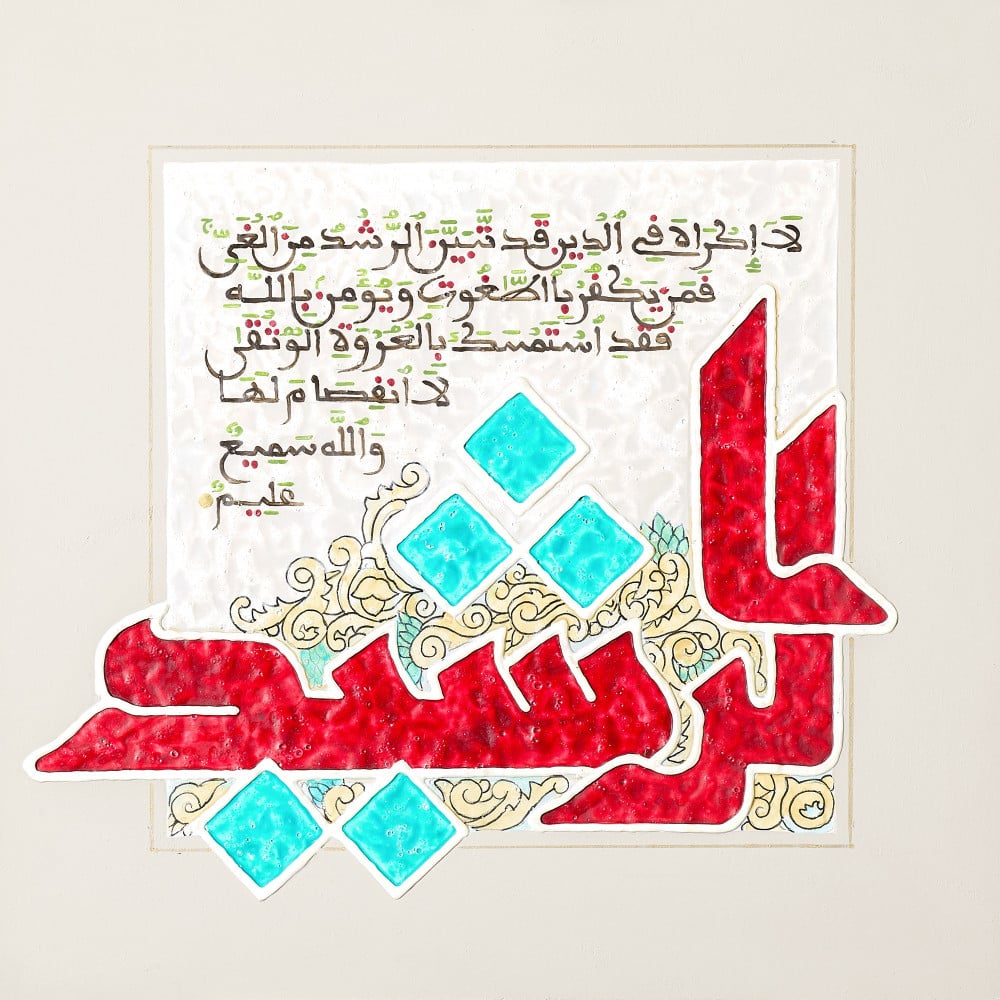 لَا إِكْرَاهَ فِي الدِّينِ قَد تَّبَيَّنَ الرُّشْدُ مِنَ الْغَيِّ
فَمَن يَكْفُرْ بِالطَّٰغُوتِ وَيُؤْمِن بِاللَّهِ
فَقَدِ اسْتَمْسَكَ بِالْعُرْوَةِ الْوُثْقَى
لَا انفِصَامَ لَهَا
وَاللَّهُ سَمِيعٌ
عَلِيمٌ
الرشيد